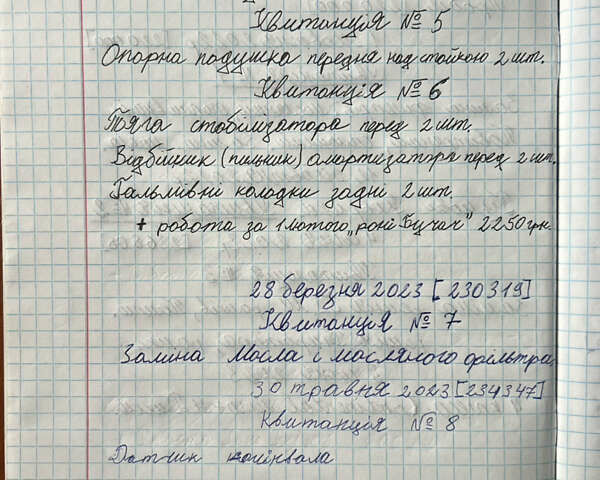 Квитанція № 5
Опорна подушка передня над стойкою 2 шт.
Квитанція № 6
Тяга стабілізатора перед 2 шт.
Відбійник (пильник) амортизатора перед 2 шт.
Гальмівні колодки задні 2 шт.
+ робота за 1 лютого „роні Бучач" 2250 грн.
28 березня 2023 [230319]
Квитанція № 7
Заміна Масла і масляного фільтра
30 травня 2023 [234347]
Квитанція № 8
Датчик колінвала